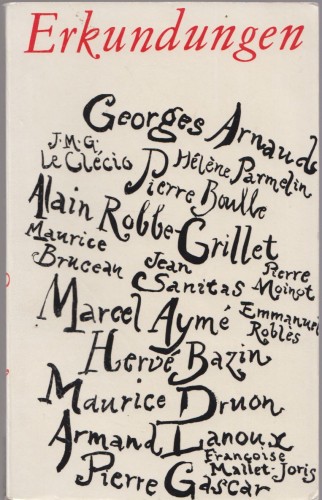 Erkundungen
Georges Arnaud
J.M.G. Le Clécio
Hélène Parmelin
Pierre Boulle
Alain Robbe-Grillet
Maurice Bruceau
Jean Sanitas
Pierre Moinot
Marcel Aymé
Emmanuel Roblès
Hervé Bazin
Maurice Druon
Armand Lanoux
Françoise Mallet-Joris
Pierre Gascar